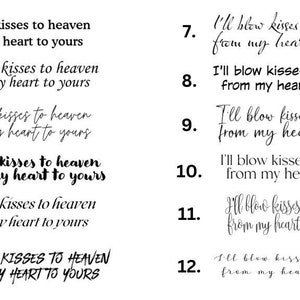 kisses to heaven
heart to yours
kisses to heaven
y heart to yours
kisses to heaven
heart to yours
kisses to heaven
y heart to yours
kisses to heaven
y heart to yours
KISSES TO HEAVEN
Y HEART TO YOURS
7. I'll blow kisses
from my hear
8. I'll blow kisse
from my hear
9. I'll blow kiss
from my hea
10. I'll blow kisse
from my hear
11. I'll blow kisses
from my heart
12. I'll blow kiss
from my hea